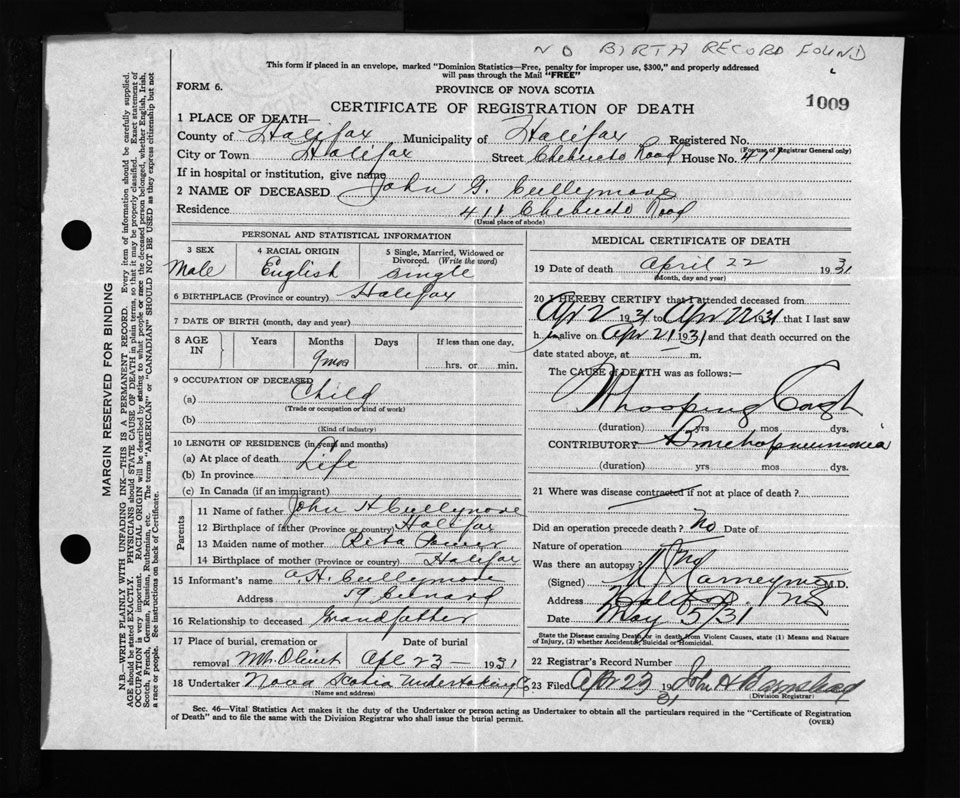 NO BIRTH RECORD FOUND
This form if placed in an envelope, marked "Dominion Statistics—Free, penalty for improper use, $300," and properly addressed
will pass through the Mail "FREE"
FORM 6.
PROVINCE OF NOVA SCOTIA
CERTIFICATE OF REGISTRATION OF DEATH
1009
1 PLACE OF DEATH—
County of Halifax Municipality of Halifax Registered No.
(For use of Registrar General only)
City or Town Halifax Street Chebucto Road House No.
If in hospital or institution, give name
2 NAME OF DECEASED John G. Cullymore
Residence 411 Chebucto Road
(Usual place of abode)
PERSONAL AND STATISTICAL INFORMATION
3 SEX 4 RACIAL ORIGIN 5 Single, Married, Widowed or Divorced. (Write the word)
Male English single
6 BIRTHPLACE (Province or country) Halifax
7 DATE OF BIRTH (month, day and year)
8 AGE IN Years Months Days If less than one day,
9 mos hrs. or min.
9 OCCUPATION OF DECEASED
(a) Child
(Trade or occupation or kind of work)
(b)
(Kind of industry)
10 LENGTH OF RESIDENCE (in years and months)
(a) At place of death Life
(b) In province
(c) In Canada (if an immigrant)
Parents
11 Name of father John H Cullymore
12 Birthplace of father (Province or country) Halifax
13 Maiden name of mother Rita
14 Birthplace of mother (Province or country) Halifax
15 Informant's name A.H. Cullymore
Address 59
16 Relationship to deceased Grandfather
17 Place of burial, cremation or Date of burial
removal Mt. Olivet Apl 23 — 1931
18 Undertaker Nova Scotia Undertaking Co
(Name and address)
MEDICAL CERTIFICATE OF DEATH
19 Date of death April 22 1931
(Month, day and year)
20 I HEREBY CERTIFY that I attended deceased from
Apr 2 1931 to Apr 22 1931 that I last saw
h im alive on Apr 21 1931 and that death occurred on the
date stated above, at — m.
The CAUSE of DEATH was as follows:—
Whooping Cough
(duration) yrs mos dys.
CONTRIBUTORY Bronchopneumonia
(duration) yrs mos dys.
21 Where was disease contracted if not at place of death?
Did an operation precede death? No Date of
Nature of operation
Was there an autopsy? No
(Signed) M.D.
Address Halifax, NS
Date May 5/31
State the Disease causing Death, or in death from Violent Causes, state (1) Means and Nature
of Injury, (2) whether Accidental, Suicidal or Homicidal.
22 Registrar's Record Number
23 Filed Apr 23 1931 John H Barnstead
(Division Registrar)
Sec. 46—Vital Statistics Act makes it the duty of the Undertaker or person acting as Undertaker to obtain all the particulars required in the "Certificate of Registration
of Death" and to file the same with the Division Registrar who shall issue the burial permit.
(OVER)
MARGIN RESERVED FOR BINDING
N.B.—WRITE PLAINLY WITH UNFADING INK—THIS IS A PERMANENT RECORD. Every item of information should be carefully supplied.
AGE should be stated EXACTLY. PHYSICIANS should STATE CAUSE OF DEATH in plain terms, so that it may be properly classified. Exact statement of
OCCUPATION is very important. RACIAL ORIGIN will be described by stating to what people or race the deceased person belonged, whether English, Irish,
Scotch, French, German, Russian, Ruthenian, etc. The terms "AMERICAN" or "CANADIAN" SHOULD NOT BE USED as they express citizenship but not
a race or people. See instructions on back of Certificate.